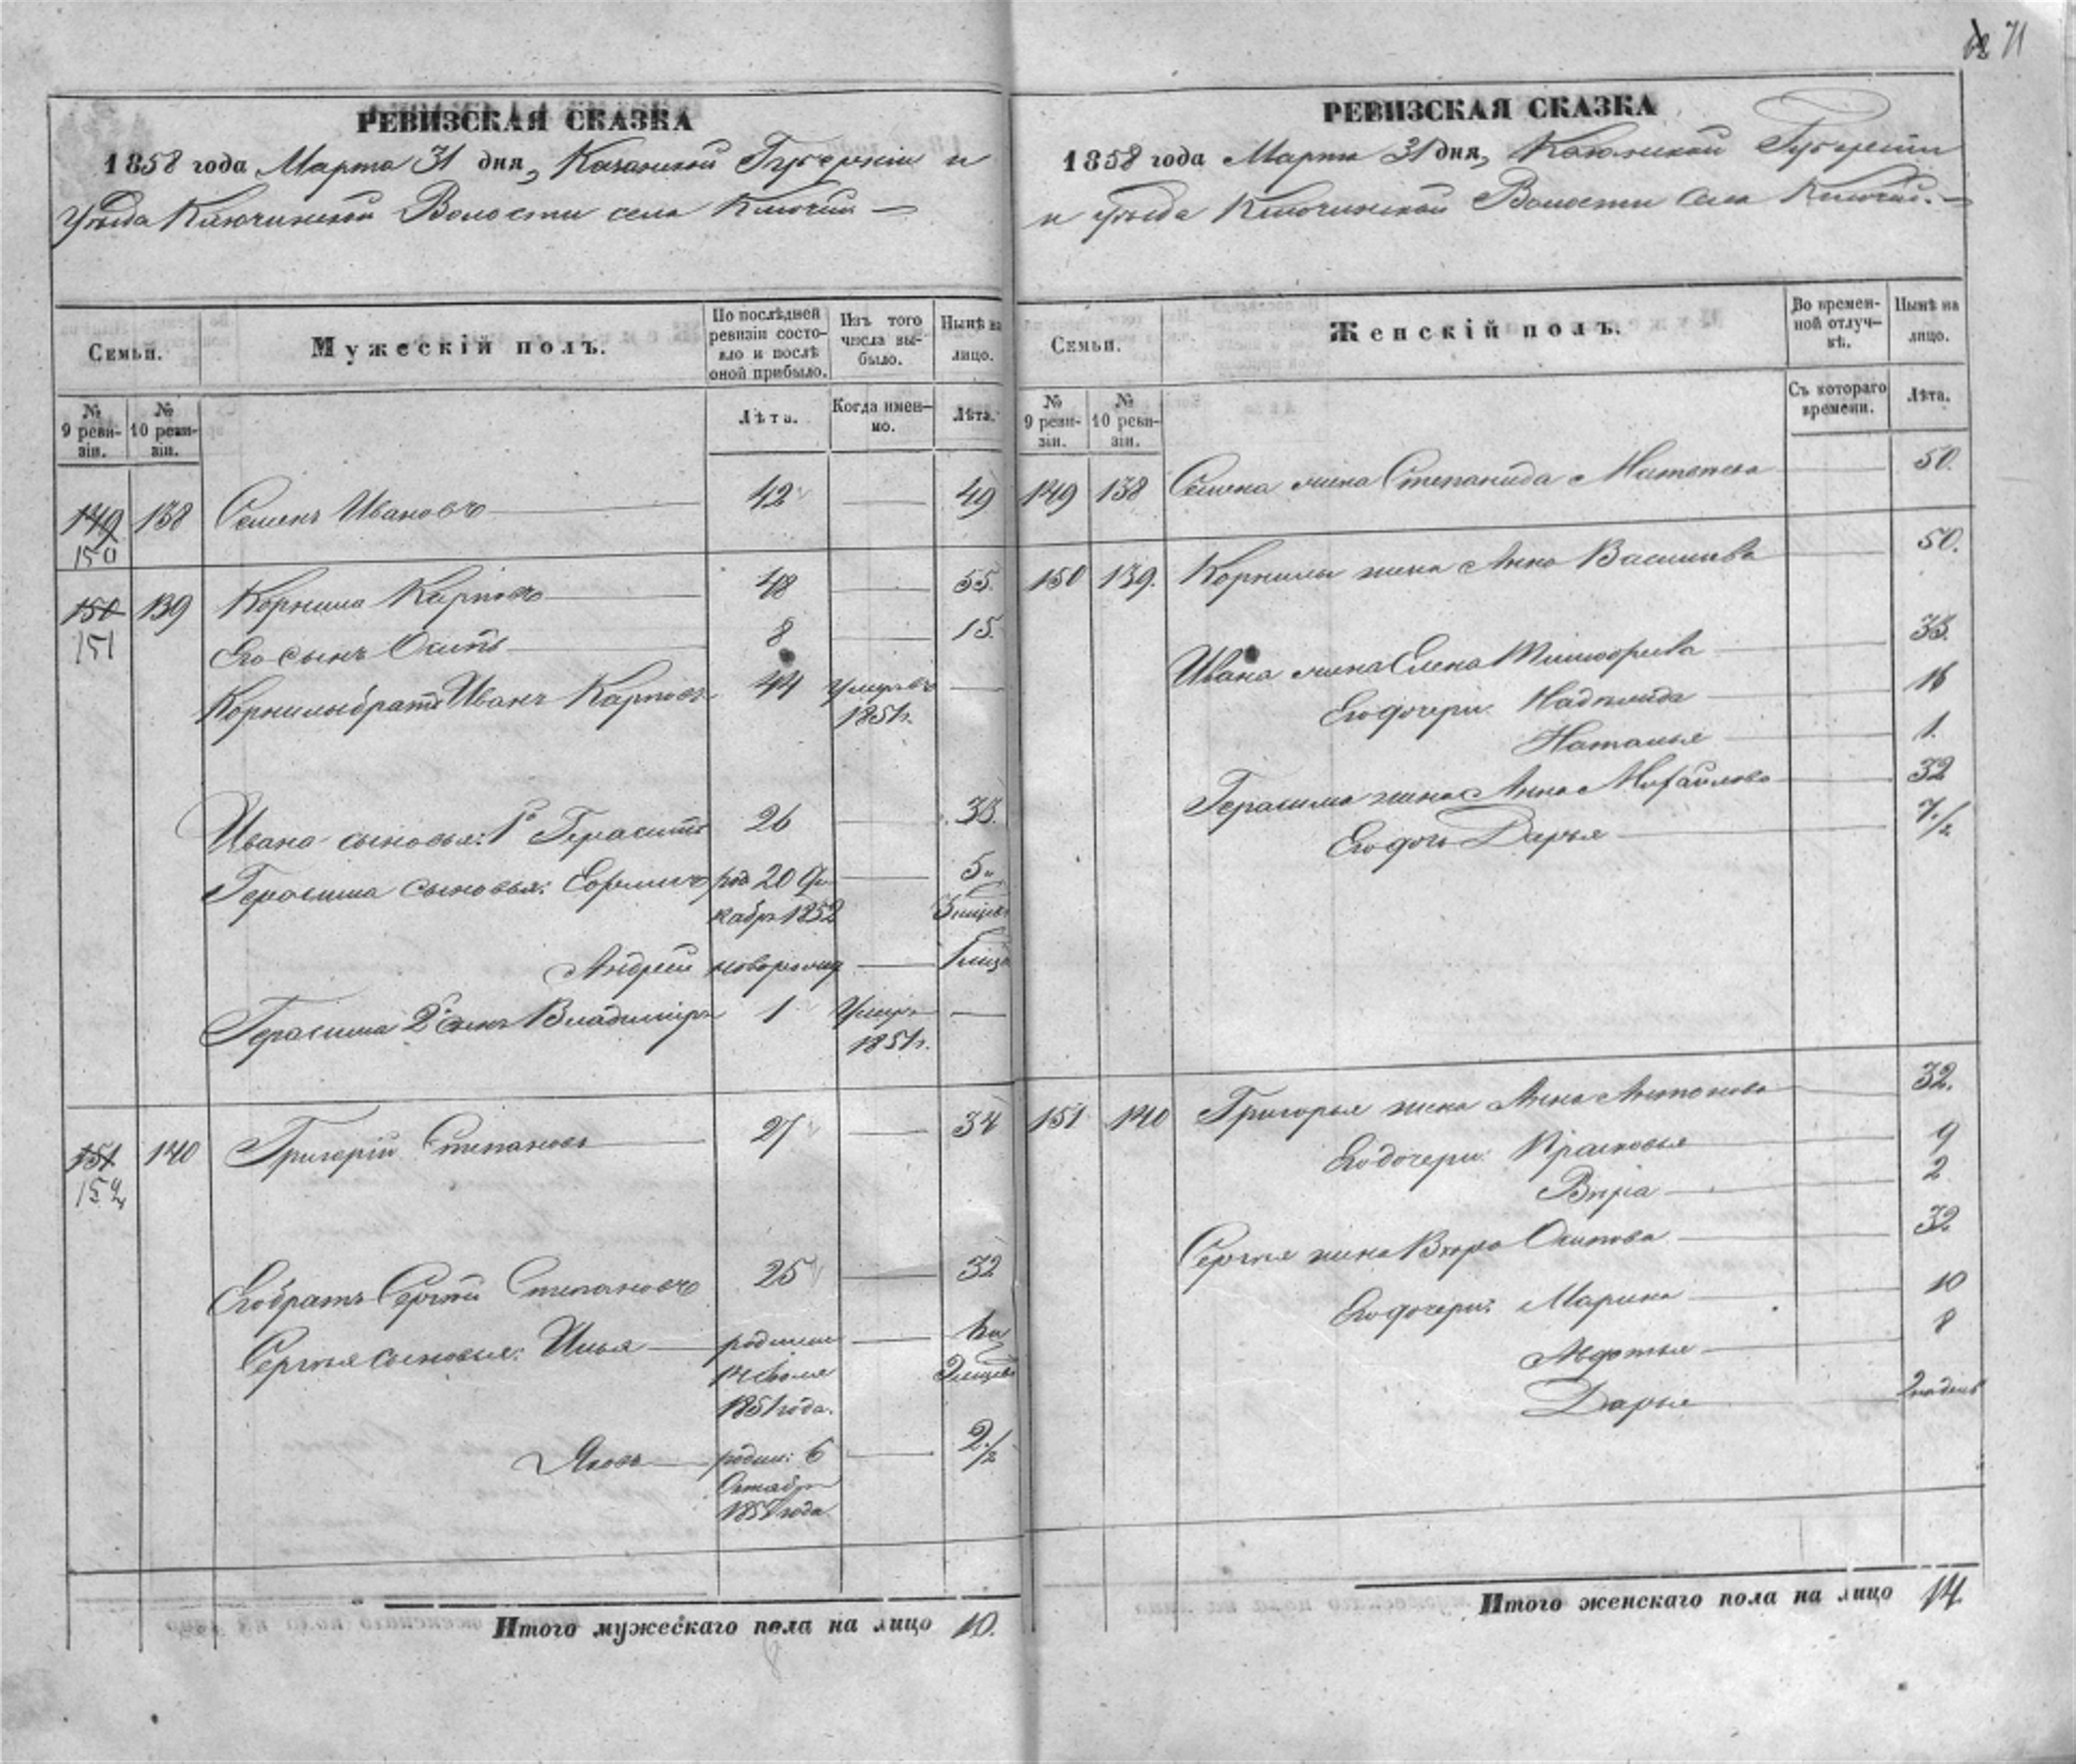 62 71
РЕВИЗСКАЯ СКАЗКА
1858 года Марта 31 дня, Казанской Губерніи и
Уѣзда Ключинской Волости села Ключи
Семьи.
Мужескій полъ.
По послѣдней ревизіи состояло и послѣ оной прибыло.
Изъ того числа выбыло.
Нынѣ на лицо.
№ 9 ревизіи.
№ 10 ревизіи.
Лѣта.
Когда именно.
Лѣта.
149 138 Семенъ Ивановъ 42 49
150
150 139 Корнила Карповъ 48 55.
151 Его сынъ Осипъ 8 15.
Корнилы братъ Иванъ Карповъ 44 Умеръ въ
1851 г.
Ивана сыновья: 1й Герасимъ 26 33.
Герасима сыновья: род 20 Де- 5 и
кабр 1852 3 мѣсяц
Андрей новорожд 1 мѣся
Герасима 2й сынъ Владимiръ 1 Умеръ
1851 г.
151 140 Григорій Степановъ 27 34
152
Его братъ Сергѣй Степановъ 25 32
Сергѣя сыновья: Илья родился 6 и
14 Іюля
1851 года.
Яковъ родил: 6 2 1/2
Октября
года
Итого мужескаго пола на лицо 10.
8
РЕВИЗСКАЯ СКАЗКА
1858 года Марта 31 дня, Казанской Губерніи
и Уѣзда Ключинской Волости Села Ключи.
Семьи.
Женскій полъ.
Во временной отлучкѣ.
Нынѣ на лицо.
№ 9 ревизіи.
№ 10 ревизіи.
Съ котораго времени.
Лѣта.
149 138 Семена жена Степанида Матвѣева 50.
150 139. Корнилы жена Анна Васильева 50.
Ивана жена Елена Тимофѣева 33.
Его дочери: 16
Наталья 1.
Герасима жена Анна Михайлова 32
Его дочь Дарья 7 1/2
151 140 Григорья жена Анна Антонова 32.
Его дочери: Прасковья 9
Вѣра 2
Сергѣя жена Осипова 32
Его дочери: Марина 10
Авдотья 8
Дарья 2 недѣль
Итого женскаго пола на лицо 14.